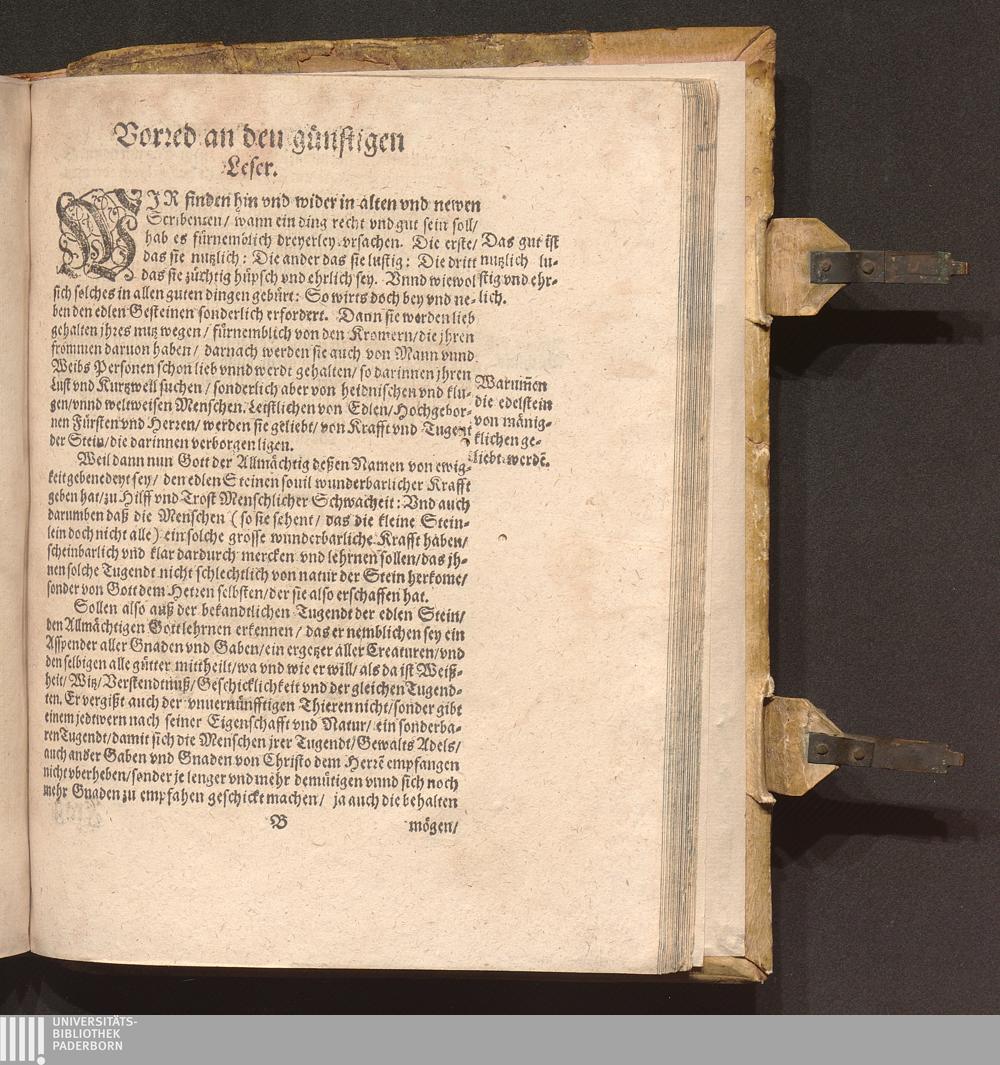 Vorred an den günstigen
Leser.
WIR finden hin vnd wider in alten vnd newen
Scribenten / wann ein ding recht vnd gut sein soll /
hab es fürnemblich dreyerley vrsachen. Die erste /
das sie nutzlich: Die ander das sie lustig: Die dritt
das sie züchtig hüpsch vnd ehrlich sey. Vnnd wiewol
sich solches in allen guten dingen gebürt: So wirts doch bey vnd ne-
ben den edlen Gesteinen sonderlich erfordert. Dann sie werden lieb
gehalten jhres nutz wegen / fürnemblich von den Kromern / die jhren
frommen daruon haben / darnach werden sie auch von Mann vnnd
Weibs Personen schon lieb vnnd werdt gehalten / so darinnen jhren
Lust vnd Kurtzweil suchen / sonderlich aber von heidnischen vnd klu-
gen / vnnd weltweisen Menschen. Leistlichen von Edlen / Hochgebor-
nen Fürsten vnd Herren / werden sie geliebt / von Krafft vnd Tugent
der Stein / die darinnen verborgen ligen.
Das gut ist
nutzlich lu-
stig vnd ehr-
lich.
Warum̃en
die edelstein
von mänig-
klichen ge-
liebt werdẽ.
Weil dann nun Gott der Allmächtig deßen Namen von ewig-
keit gebenedeyt sey / den edlen Steinen souil wunderbarlicher Krafft
geben hat / zu Hilff vnd Trost Menschlicher Schwacheit: Vnd auch
darumben daß die Menschen (so sie sehent / das die kleine Stein-
lein doch nicht alle) ein solche grosse wunderbarliche Krafft haben /
scheinbarlich vnd klar dardurch mercken vnd lehrnen sollen / das jh-
nen solche Tugendt nicht schlechtlich von natur der Stein herkome /
sonder von Gott dem Herren selbsten / der sie also erschaffen hat.
Sollen also auß der bekandtlichen Tugendt der edlen Stein /
den Allmächtigen Gott lehrnen erkennen / das er nemblichen sey ein
Asspender aller Gnaden vnd Gaben / ein ergetzer aller Creaturen / vnd
den selbigen alle gütter mittheilt / wa vnd wie er will / als da ist Weiß-
heit / Witz / Verstendtnuß / Geschicklichkeit vnd der gleichen Tugend-
ten. Er vergißt auch der vnuernünfftigen Thieren nicht / sonder gibt
einem jedtwern nach seiner Eigenschafft vnd Natur / ein sonderba-
ren Tugendt / damit sich die Menschen jrer Tugendt / Gewalts Adels /
auch ander Gaben vnd Gnaden von Christo dem Herrẽ empfangen
nicht vberheben / sonder je lenger vnd mehr demütigen vnnd sich noch
mehr Gnaden zu empfahen geschickt machen / ja auch die behalten
B mögen /
UNIVERSITÄTS-
BIBLIOTHEK
PADERBORN